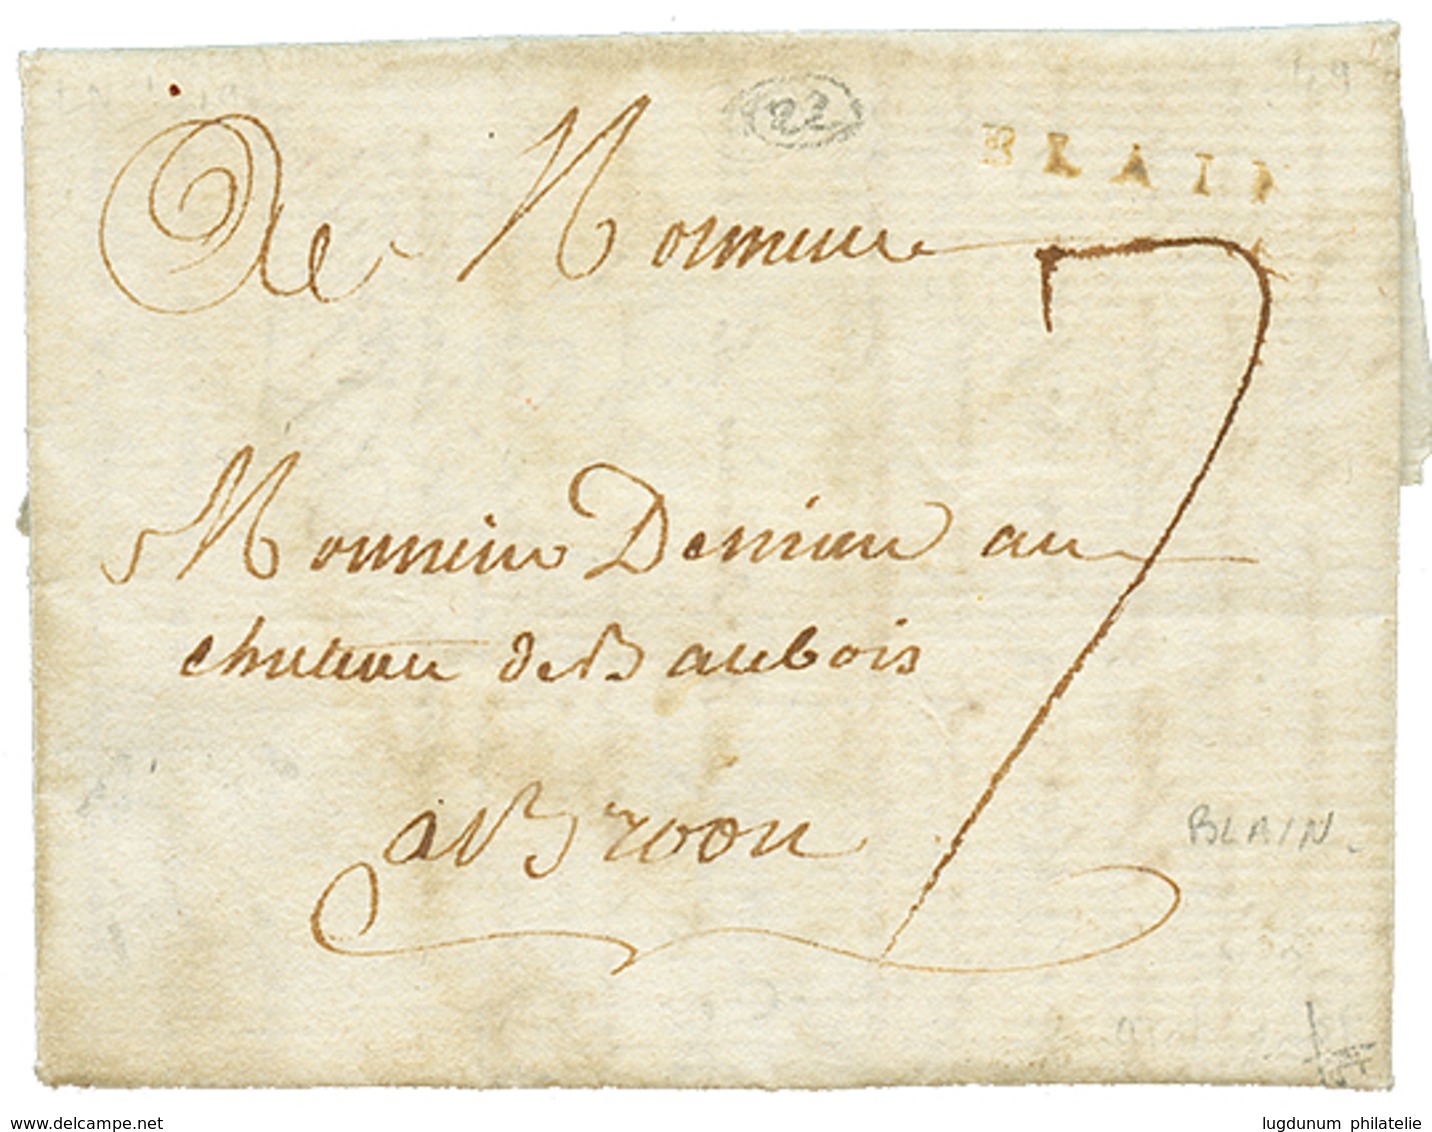 22
BLAIN
A Monsieur
7
Monsieur Dessieu au
chateau de Baubois
a Broon
BLAIN
www.delcampe.net
lugdunum philatelie